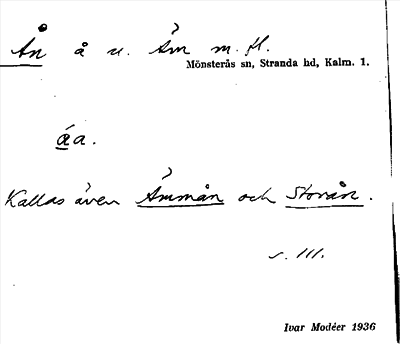 Ån å u. Åm m. fl.
Mönsterås sn, Stranda hd, Kalm. l.
åa.
Kallas även Åmmån och Storån.
s. 111.
Ivar Modéer 1936